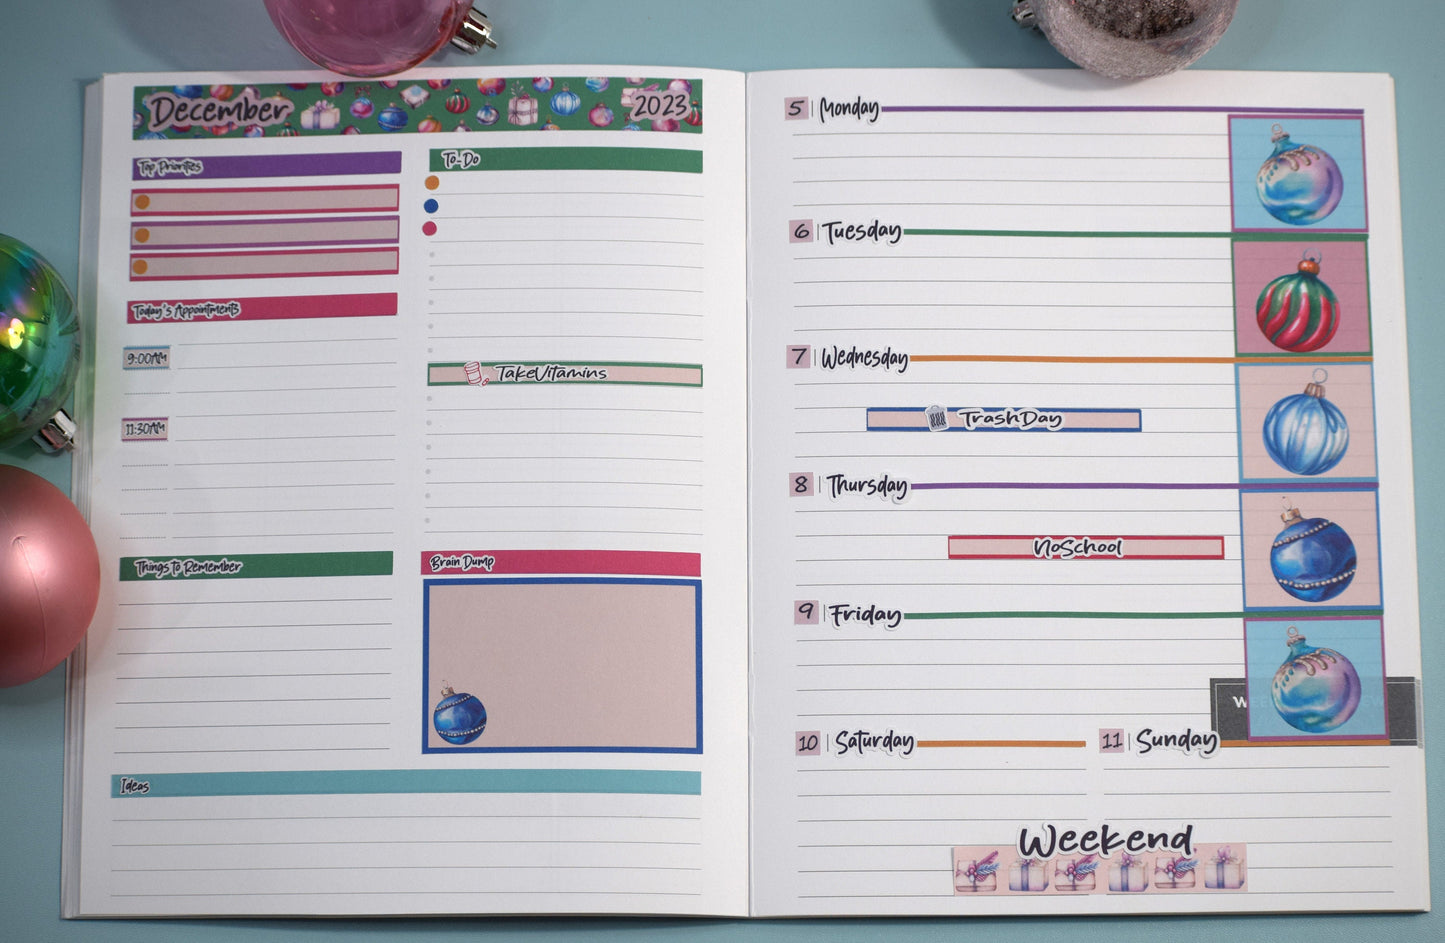 December 2023
Top Priorities
To-Do
Today's Appointments
9:00AM
Take Vitamins
11:30AM
Things to Remember
Brain Dump
Ideas
5 Monday
6 Tuesday
7 Wednesday
Trash Day
8 Thursday
No School
9 Friday
10 Saturday
11 Sunday
Weekend